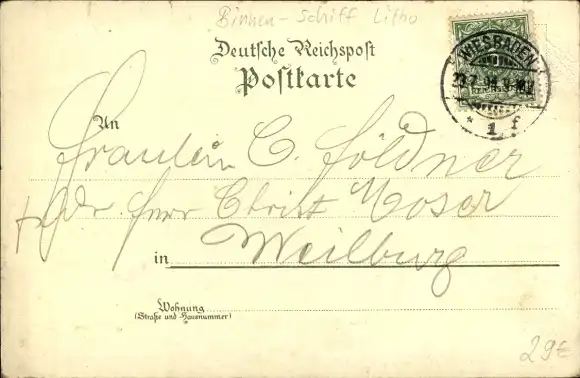 Binnen-Schiff Litho
Deutsche Reichspost
Postkarte
WIESBADEN
* 1 f
An
Fräulein C. Földner
Herr Christ Moser
in Weilburg
Wohnung
(Straße und Hausnummer)
29€